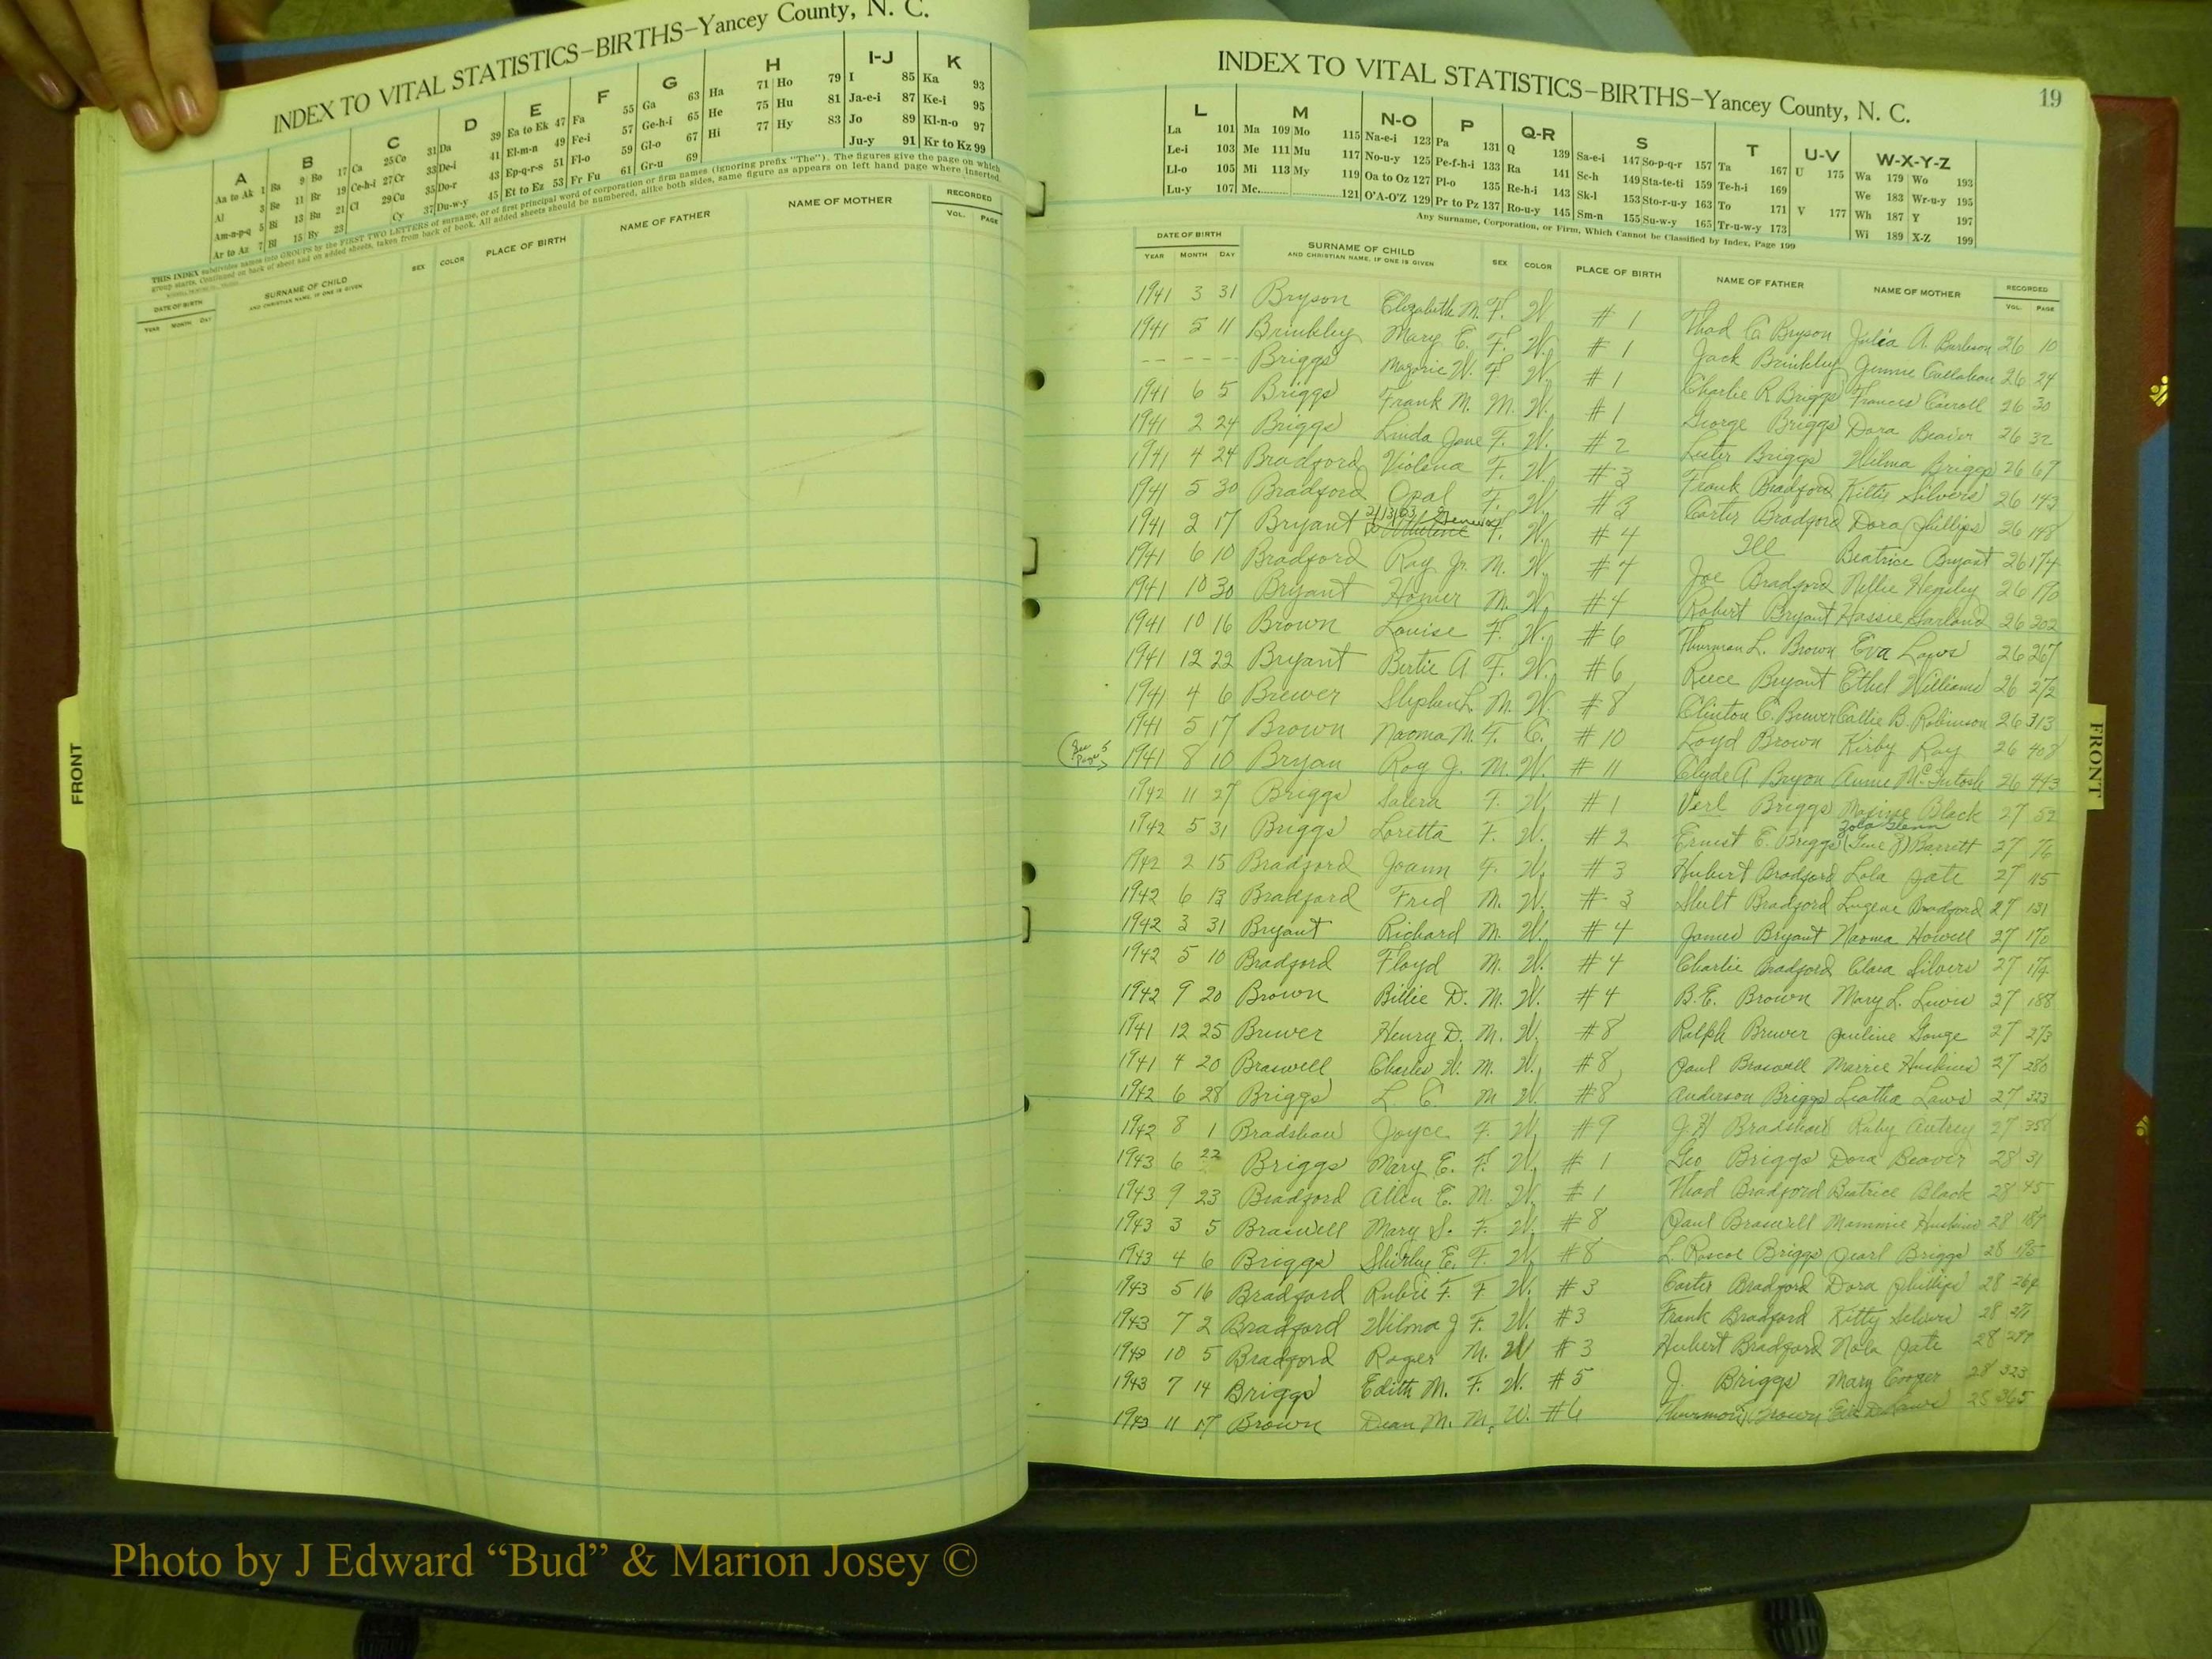 INDEX TO VITAL STATISTICS–BIRTHS–Yancey County, N. C.
A B C D E F G H I-J K
Aa to Ak 1 Ba 9 Bo 17 Ca 25 Co 31 Da 39 Ea to Ek 47 Fa 55 Ga 63 Ha 71 Ho 79 I 85 Ka 93
Al 3 Be 11 Br 19 Ce-h-i 27 Cr 33 De-i 41 El-m-n 49 Fe-i 57 Ge-h-i 65 He 75 Hu 81 Ja-e-i 87 Ke-i 95
Am-n-p-q 5 Bi 13 Bu 21 Cl 29 Cu 35 Do-r 43 Ep-q-r-s 51 Fl-o 59 Gl-o 67 Hi 77 Hy 83 Jo 89 Kl-n-o 97
Ar to Az 7 Bl 15 By 23 Cy 37 Du-w-y 45 Et to Ez 53 Fr Fu 61 Gr-u 69 Ju-y 91 Kr to Kz 99
THIS INDEX subdivides names into GROUPS by the FIRST TWO LETTERS of surname, or of first principal word of corporation or firm names (ignoring prefix "The"). The figures give the page on which
group starts. Continued on back of sheet and on added sheets, taken from back of book. All added sheets should be numbered, alike both sides, same figure as appears on left hand page where inserted.
DATE OF BIRTH SURNAME OF CHILD SEX COLOR PLACE OF BIRTH NAME OF FATHER NAME OF MOTHER RECORDED
YEAR MONTH DAY AND CHRISTIAN NAME, IF ONE IS GIVEN VOL. PAGE
FRONT
INDEX TO VITAL STATISTICS–BIRTHS–Yancey County, N. C. 19
L M N-O P Q-R S T U-V W-X-Y-Z
La 101 Ma 109 Mo 115 Na-e-i 123 Pa 131 Q 139 Sa-e-i 147 So-p-q-r 157 Ta 167 U 175 Wa 179 Wo 193
Le-i 103 Me 111 Mu 117 No-u-y 125 Pe-f-h-i 133 Ra 141 Sc-h 149 Sta-te-ti 159 Te-h-i 169 We 183 Wr-u-y 195
Ll-o 105 Mi 113 My 119 Oa to Oz 127 Pl-o 135 Re-h-i 143 Sk-l 153 Sto-r-u-y 163 To 171 V 177 Wh 187 Y 197
Lu-y 107 Mc 121 O'A-O'Z 129 Pr to Pz 137 Ro-u-y 145 Sm-n 155 Su-w-y 165 Tr-u-w-y 173 Wi 189 X-Z 199
Any Surname, Corporation, or Firm, Which Cannot be Classified by Index, Page 199
DATE OF BIRTH SURNAME OF CHILD SEX COLOR PLACE OF BIRTH NAME OF FATHER NAME OF MOTHER RECORDED
YEAR MONTH DAY AND CHRISTIAN NAME, IF ONE IS GIVEN VOL. PAGE
1941 3 31 Bryson Elizabeth M. F. W # 1 Thad C Bryson Julia A. Burleson 26 10
1941 5 11 Brinkley Mary E. F. W. # 1 Jack Brinkley Jennie Callahan 26 24
-- -- -- Briggs Marjorie W. F W # 1 Charlie R Briggs Frances Carroll 26 30
1941 6 5 Briggs Frank M. M. W. # 1 George Briggs Dora Beaver 26 32
1941 2 24 Briggs Linda Jane F. W. # 2 Lester Briggs Wilma Briggs 26 67
1941 4 24 Bradford Violena F. W. # 3 Frank Bradford Kitty Silvers 26 143
1941 5 30 Bradford Opal F. W. # 3 Carter Bradford Dora Phillips 26 148
1941 2 17 Bryant 2/13/63 F. W. # 4 Ill Beatrice Bryant 26 174
1941 6 10 Bradford Ray Jr. M. W. # 4 Joe Bradford Nellie Hensley 26
1941 10 30 Bryant Homer M. W. # 4 Robert Bryant Hassie Garland 26 202
1941 10 16 Brown Louise F. W. # 6 Thurman L. Brown Eva Laws 26 267
1941 12 22 Bryant Bertie A F. W. # 6 Reece Bryant Ethel Williams 26 272
1941 4 6 Brewer Stephen L. M. W. # 8 Clinton C. Brewer Callie B. Robinson 26 313
1941 5 17 Brown Naoma M. F. C. # 10 Loyd Brown Kirby Ray 26 408
(See Page 5) 1941 8 10 Bryan Roy J. M. W. # 11 Clyde A Bryan Annie McIntosh 26 443
1942 11 27 Briggs Salera F. W. # 1 Verl Briggs Maxine Black 27 52
1942 5 31 Briggs Loretta F. W. # 2 Ernest E. Briggs Zola Glenn Barrett 27 76
1942 2 15 Bradford Joann F. W. # 3 Hubert Bradford Lola Pate 27 115
1942 6 13 Bradford Fred M. W. # 3 Shult Bradford Lugene Bradford 27 131
1942 3 31 Bryant Richard M. W. # 4 James Bryant Naoma Howell 27 170
1942 5 10 Bradford Floyd M. W. # 4 Charlie Bradford Clara Silvers 27 174
1942 9 20 Brown Billie D. M. W. # 4 B. E. Brown Mary L. Lewis 27 188
1941 12 25 Brewer Henry D. M. W. # 8 Ralph Brewer Pauline Gouge 27 273
1941 4 20 Braswell Charles W. M. W. # 8 Paul Braswell Huskins 27 280
1942 6 28 Briggs L. C. M W. # 8 Anderson Briggs Leatha Laws 27 323
1942 8 1 Bradshaw Joyce F. W. # 9 J. H Bradshaw Ruby Autrey 27 358
1943 6 22 Briggs Mary E. F. W. # 1 Geo Briggs Dora Beaver 28 31
1943 9 23 Bradford Allen E. M. W. # 1 Thad Bradford Beatrice Black 28 45
1943 3 5 Braswell Mary S. F. W. # 8 Paul Braswell Mammie Huskins 28 189
1943 4 6 Briggs Shirley E. F. W. # 8 L. Roscoe Briggs Pearl Briggs 28 195
1943 5 16 Bradford Rubie F. F W. # 3 Carter Bradford Dora Phillips 28
1943 7 2 Bradford Wilma J F. W. # 3 Frank Bradford Kitty Silvers 28
1943 10 5 Bradford Roger M. W # 3 Hubert Bradford Nola Pate 28
1943 7 14 Briggs Edith M. F. W. # 5 J. Briggs Mary Cooper 28 323
1943 11 17 Brown Dean M. M. W. # 6 Brown Laws 28 365
FRONT
Photo by J Edward “Bud” & Marion Josey ©